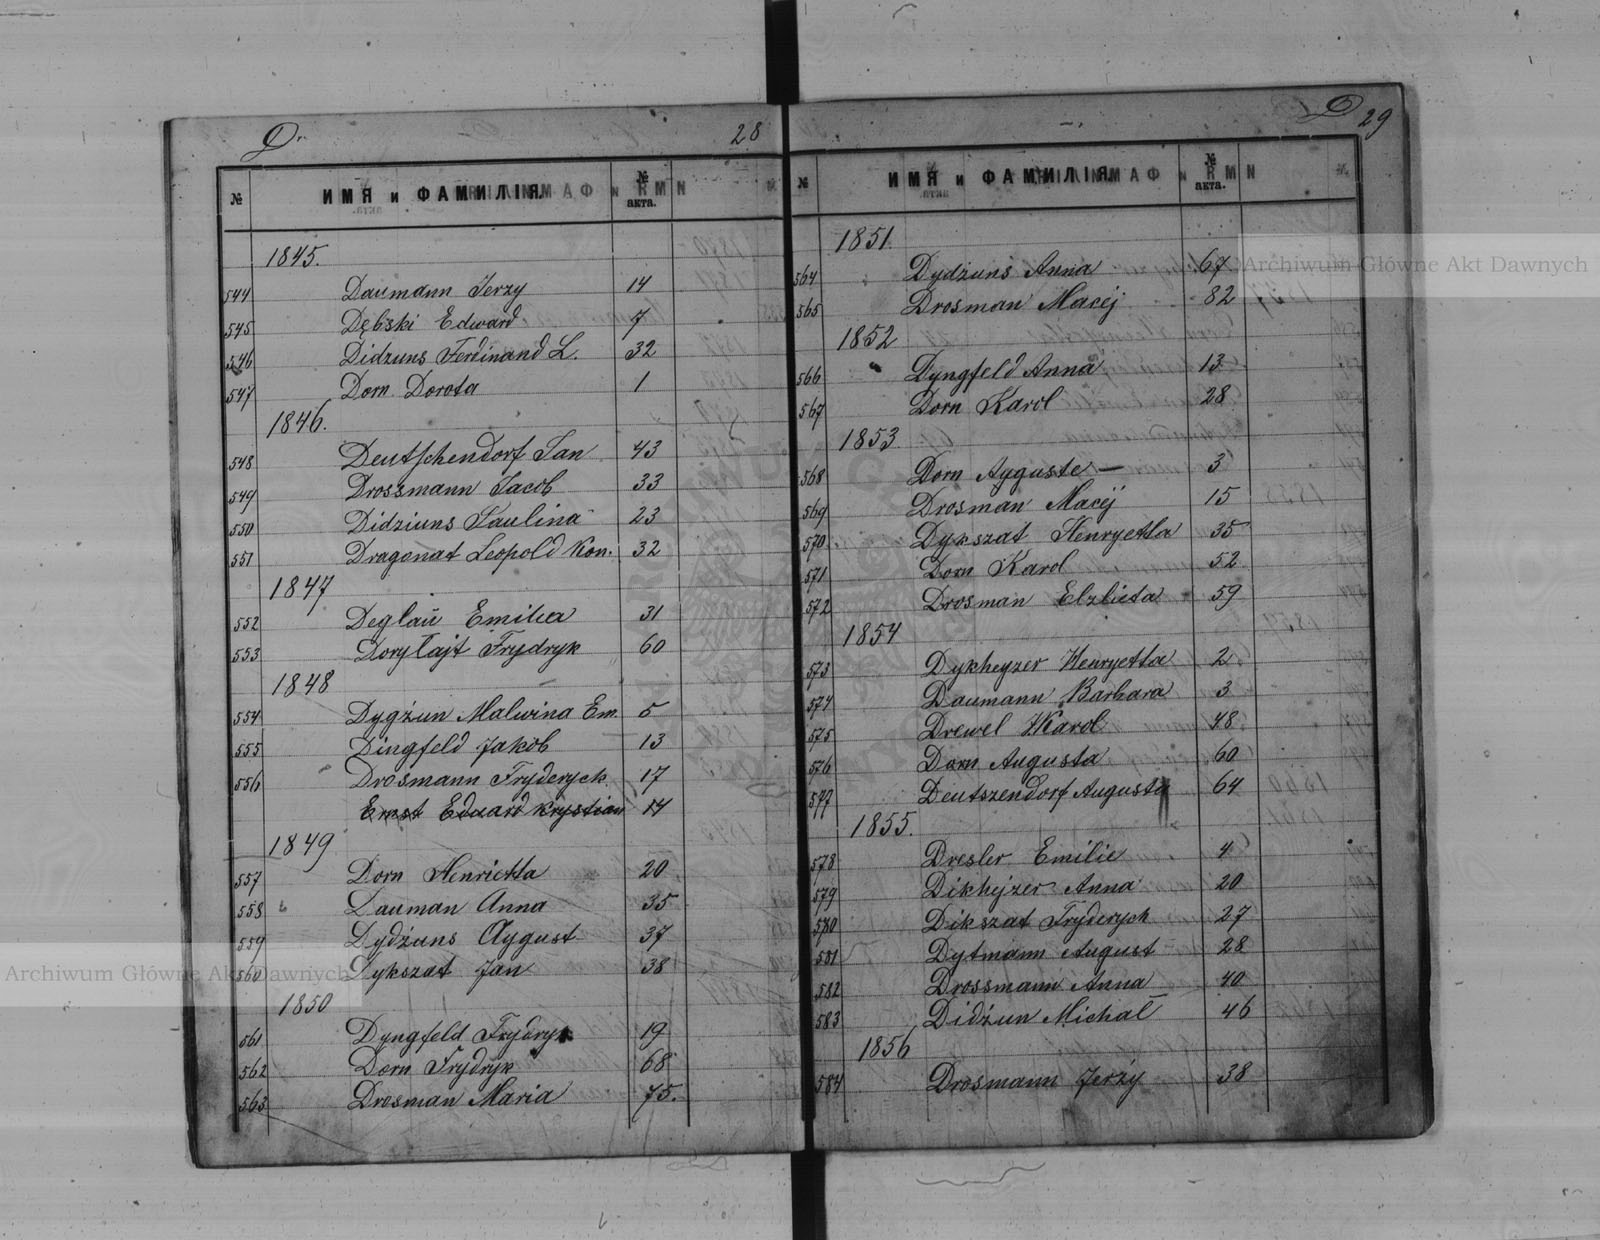 D. 28
№ ИМЯ и ФАМИЛІЯ. № акта.
1845.
544 Daumann Jerzy 14
545 Dębski Edward 7
546 Didzuns Ferdinand L. 32
547 Dorn Dorota 1
1846.
548 Deutschendorf Jan 43
549 Drossmann Jacob 33
550 Didziuns Paulina 23
551 Dragonat Leopold Kon. 32
1847
552 Deglaŭ Emilia 31
553 Dorylajt Frydryk 60
1848
554 Dygżun Malwina Em. 5
555 Dingfeld Jakob 13
556 Drosmann Fryderych 17
Ernst Eduard Krystian 14
1849
557 Dorn Henrietta 20
558 Dauman Anna 35
559 Dydżuns Aygust 37
560 Dykszat Jan 38
1850
561 Dyngfeld Frydryk 19
562 Dorn Frydryk 68
563 Drosman Maria 75.
D 29
№ ИМЯ и ФАМИЛІЯ. № акта.
1851.
564 Dydżuns Anna 67
565 Drosman Macéj 82
1852
566 Dyngfeld Anna 13
567 Dorn Karol 28
1853
568 Dorn Ayguste — 3
569 Drosman Macéj 15
570 Dykszat Henryetta 35
571 Dorn Karol 52
572 Drosman Elzbieta 59
1854
573 Dykheyzer Henryetta 2
574 Daumann Barbara 3
575 Drewel Karol 48
576 Dorn Augusta 60
577 Deutszendorf Augusta 64
1855.
578 Dresler Emilie 4
579 Dikhejzer Anna 20
580 Dikszat Fryderych 27
581 Dytmann August 28
582 Drossmann Anna 40
583 Didżun Michał 46
1856
584 Drosmann Jerzy 38
Archiwum Główne Akt Dawnych
Archiwum Główne Akt Dawnych